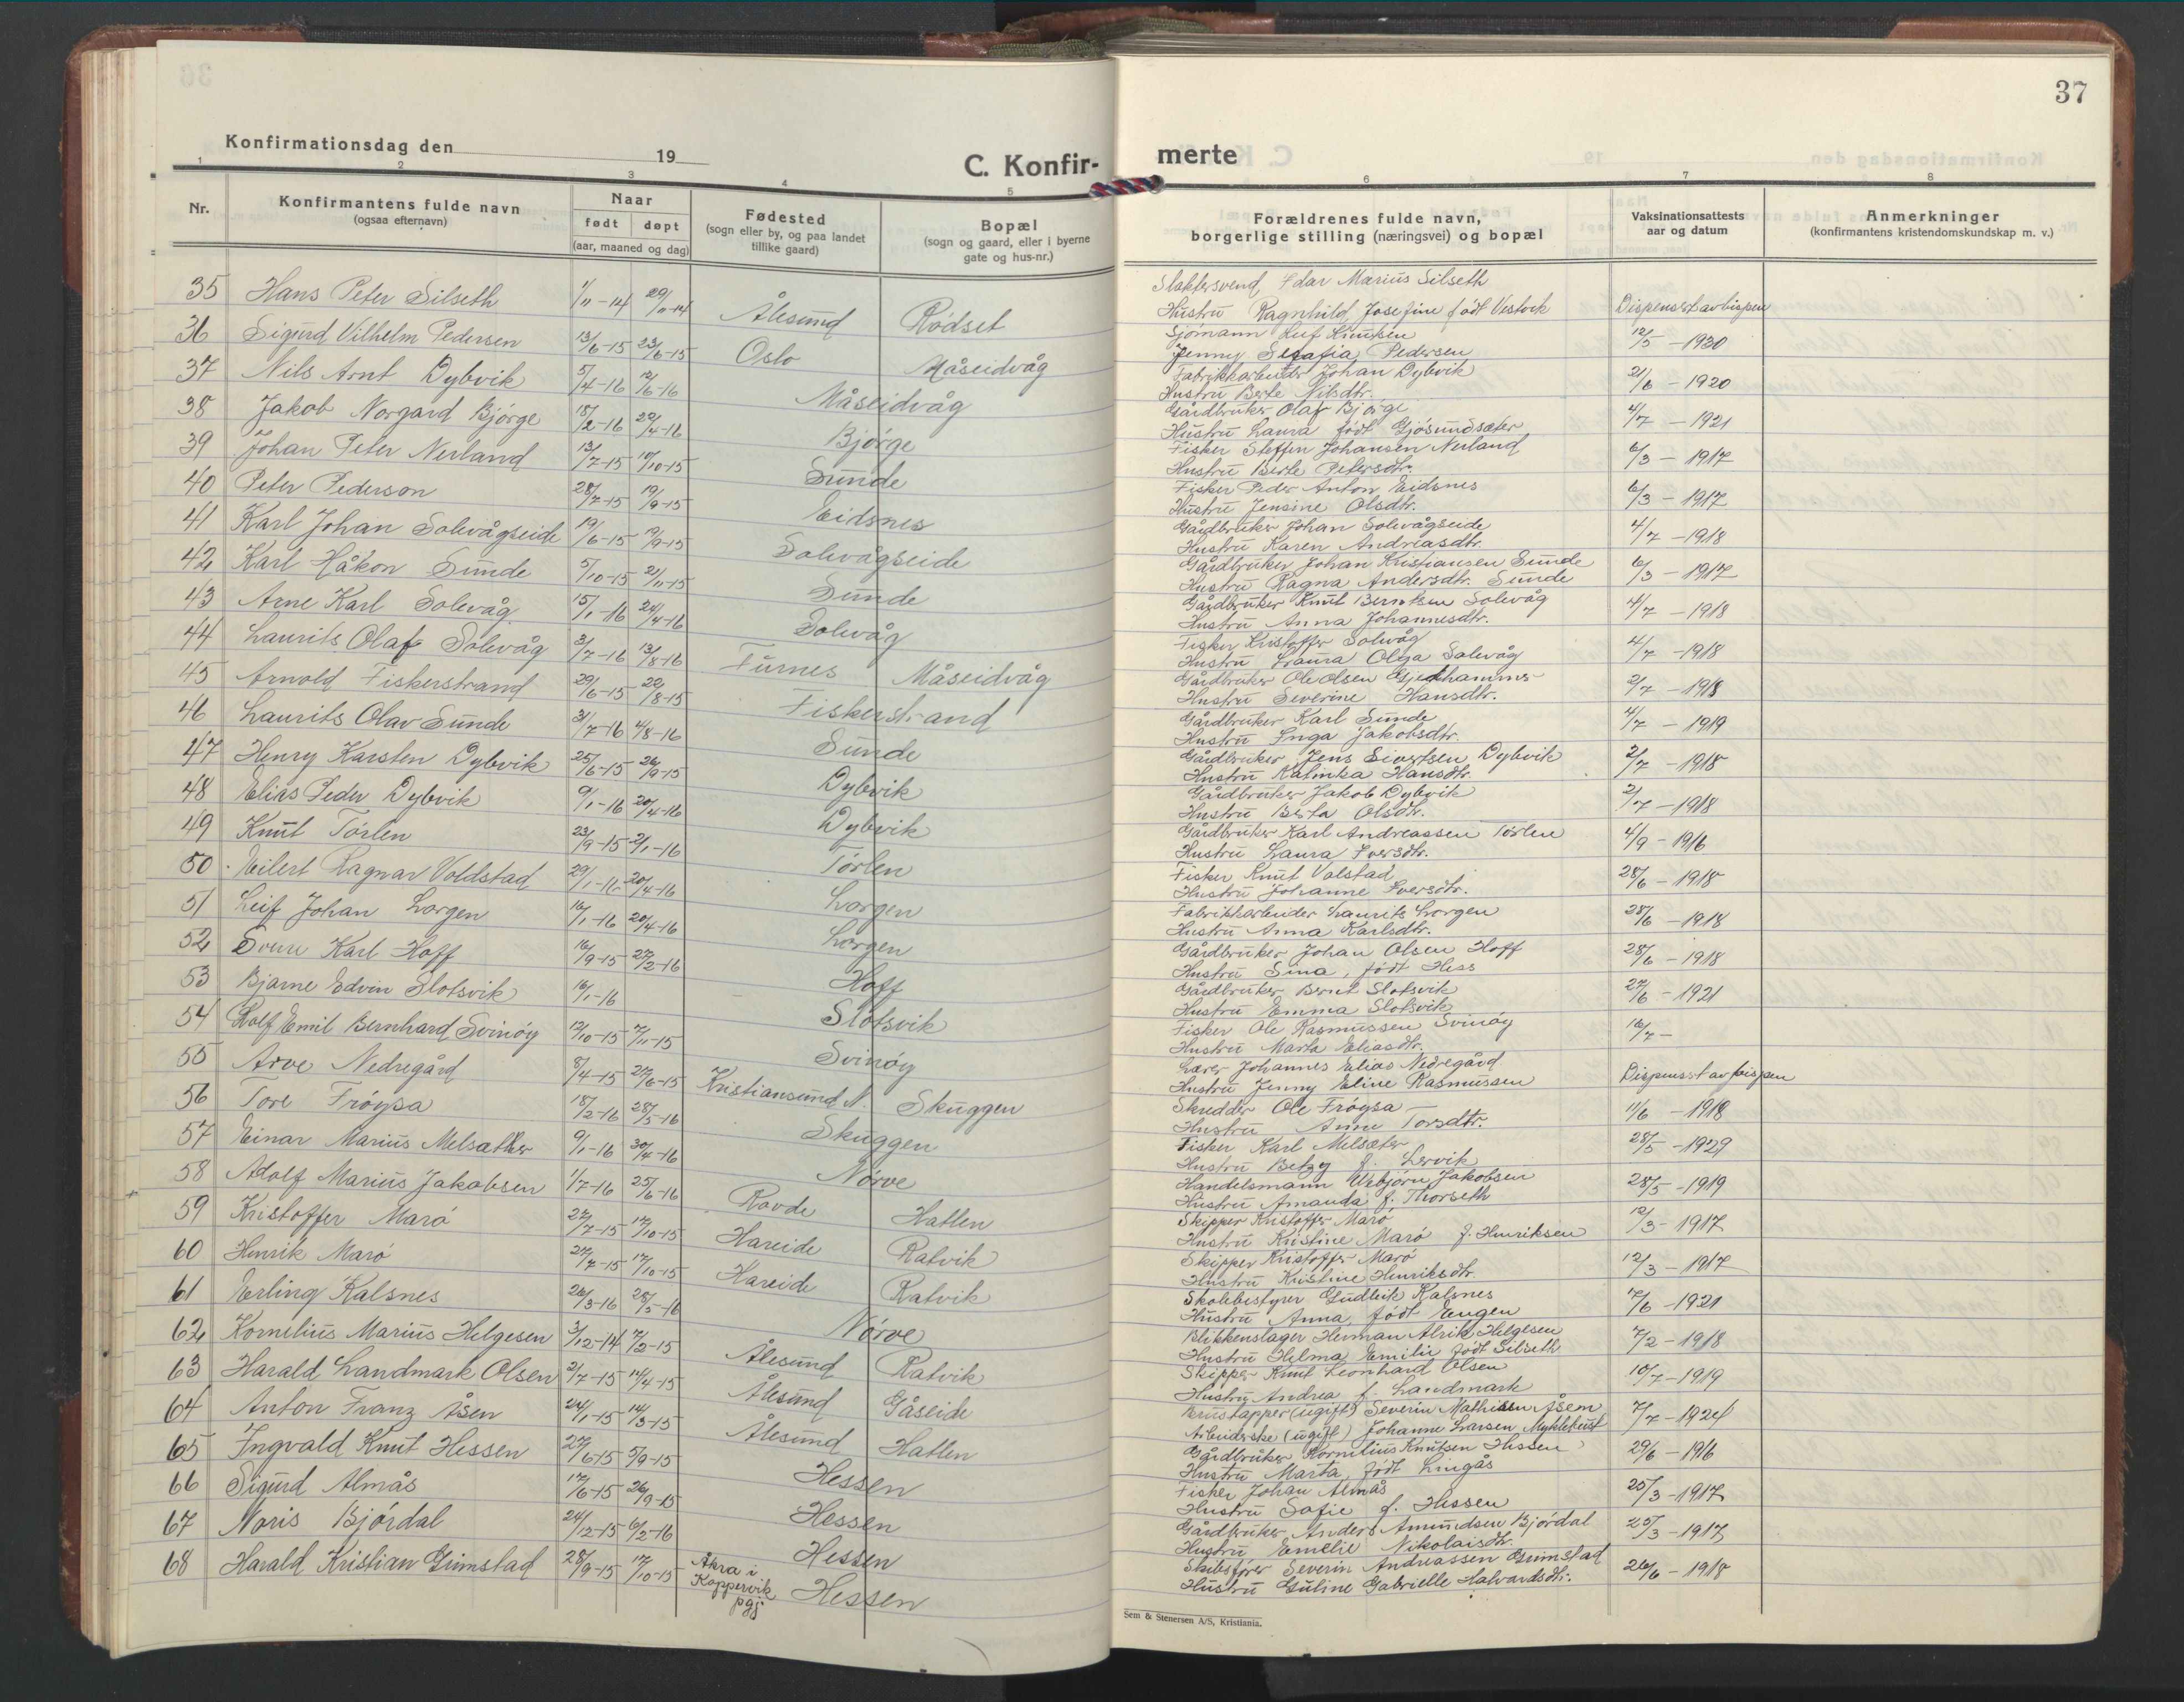 37
Konfirmationsdag den 19
C. Konfirmerte
1 2 3 4 5 6 7 8
Nr.
Konfirmantens fulde navn
(ogsaa efternavn)
Naar
født døpt
(aar, maaned og dag)
Fødested
(sogn eller by, og paa landet
tillike gaard)
Bopæl
(sogn og gaard, eller i byerne
gate og hus-nr.)
Forældrenes fulde navn,
borgerlige stilling (næringsvei) og bopæl
Vaksinationsattests
aar og datum
Anmerkninger
(konfirmantens kristendomskundskap m. v.)
35 Hans Peter Silseth 1/11-14 29/11-14 Ålesund Rødset
Slaktersvend Idar Marius Silseth
Hustru Ragnhild Josefine født Vestvik Dispensert av bispen
36 Sigurd Vilhelm Pedersen 13/6-15 23/6-15 Oslo Måseidvåg
Sjømann Knutsen
Jenny Serafia Pedersen 12/5-1920
37 Nils Arnt Dybvik 5/4-16 12/6-16 Måseidvåg
Fabrikkarbeider Johan Dybvik
Hustru Berte Nilsdtr. 21/6-1920
38 Jakob Norgard Bjørge 18/2-16 20/4-16 Bjørge
Gårdbruker Olaf Bjørge
Hustru Laura født Gjøsundsæter 4/7-1921
39 Johan Peter Nerland 13/7-15 10/10-15 Sunde
Fisker Steffen Johansen Nerland
Hustru Berte Petersdtr. 6/3-1917
40 Peter Pederson 28/7-15 19/9-15 Eidsnes
Fisker Peder Anton Eidsnes
Hustru Jensine Olsdtr. 6/3-1917
41 Karl Johan Solevågseide 19/6-15 19/9-15 Solevågseide
Gårdbruker Johan Solevågseide
Hustru Karen Andreasdtr. 4/7-1918
42 Karl Håkon Sunde 5/10-15 21/11-15 Sunde
Gårdbruker Johan Kristiansen Sunde
Hustru Ragna Andersdtr. Sunde 6/3-1917
43 Arne Karl Solevåg 15/1-16 24/4-16 Solevåg
Gårdbruker Knut Berntsen Solevåg
Hustru Anna Johannesdtr. 4/7-1918
44 Laurits Olaf Solevåg 3/7-16 13/8-16 Furnes Måseidvåg
Fisker Kristoffer Solevåg
Hustru Laura Olga Solevåg 4/7-1918
45 Arnold Fiskerstrand 29/6-15 22/8-15 Fiskerstrand
Gårdbruker Ole Olsen
Hustru Severine Hansdtr. 2/7-1918
46 Laurits Olav Sunde 31/7-16 4/8-16 Sunde
Gårdbruker Karl Sunde
Hustru Inga Jakobsdtr. 4/7-1919
47 Henry Karsten Dybvik 25/6-15 26/9-15 Dybvik
Gårdbruker Jens Sivertsen Dybvik
Hustru Katinka Hansdtr. 2/7-1918
48 Elias Peder Dybvik 9/1-16 20/4-16 Dybvik
Gårdbruker Jakob Dybvik
Hustru Berta Olsdtr. 2/7-1918
49 Knut Tørlen 23/9-15 2/1-16 Tørlen
Gårdbruker Karl Andreassen Tørlen
Hustru Laura Iversdtr. 4/9-1916
50 Eilert Ragnar Voldstad 29/1-16 20/4-16 Lorgen
Fisker Knut Valstad
Hustru Johanne Iversdtr. 28/6-1918
51 Leif Johan Lorgen 16/1-16 20/4-16 Lorgen
Fabrikkarbeider Laurits Lorgen
Hustru Anna Karlsdtr. 28/6-1918
52 Sverre Karl Hoff 16/9-15 27/2-16 Hoff
Gårdbruker Johan Olsen Hoff
Hustru Sina, født Hess 28/6-1918
53 Bjarne Edvin Slotsvik 16/1-16 Slotsvik
Gårdbruker Bernt Slotsvik
Hustru Emma Slotsvik 27/6-1921
54 Rolf Emil Bernhard Svinøy 12/10-15 7/11-15 Svinøy
Fisker Ole Rasmussen Svinøy
Hustru Marta Eliasdtr. 16/7-
55 Arve Nedregård 8/4-15 27/6-15 Kristiansund N. Skuggen
Lærer Johannes Elias Nedregård
Hustru Jenny Eline Rasmussen Dispensert av bispen
56 Tore Frøysa 18/2-16 28/5-16 Skuggen
Skredder Ole Frøysa
Hustru Anne Torsdtr. 11/6-1918
57 Einar Marius Melsæther 9/1-16 30/4-16 Nørve
Fisker Karl Melsæter
Hustru Betzy f. Lervik 28/5-1929
58 Adolf Marius Jakobsen 1/7-16 25/6-16 Rovde Hatlen
Handelsmann Jakobsen
Hustru Amanda f. Thorseth 28/5-1919
59 Kristoffer Marø 27/7-15 17/10-15 Hareide Ratvik
Skipper Kristoffer Marø
Hustru Kristine Marø f. Henriksen 12/3-1917
60 Henrik Marø 27/7-15 17/10-15 Hareide Ratvik
Skipper Kristoffer Marø
Hustru Kristine Henriksdtr. 12/3-1917
61 Erling Kalsnes 26/3-16 28/5-16 Nørve
Skolebestyrer Gudleik Kalsnes
Hustru Anna, født Engen 7/6-1921
62 Kornelius Marius Helgesen 3/12-14 7/2-15 Ålesund Ratvik
Blikkenslager Herman Alrik Helgesen
Hustru Helma Emilie født Silseth 7/2-1918
63 Harald Landmark Olsen 2/7-15 14/4-15 Ålesund Gåseide
Skipper Knut Leonhard Olsen
Hustru Andrea f. Landmark 10/7-1919
64 Anton Franz Åsen 24/1-15 14/3-15 Ålesund Hatlen
Brustapper (ugift) Severin Mathisen Åsem
Arbeiderske (ugift) Johanne Larsen Myklebust 7/7-1924
65 Ingvald Knut Hessen 27/6-15 5/9-15 Hessen
Gårdbruker Kornelius Knutsen Hessen
Hustru Marta, født Lingås 29/6-1916
66 Sigurd Almås 17/6-15 26/9-15 Hessen
Fisker Johan Almås
Hustru Sofie f. Hessen 25/3-1917
67 Noris Bjørdal 24/12-15 6/2-16 Hessen
Gårdbruker Anders Amundsen Bjørdal
Hustru Emelie Nikolaisdtr. 25/3-1917
68 Harald Kristian Grimstad 28/9-15 17/10-15 Åkra i Koppervik pgj Hessen
Skibsfører Severin Andreassen Grimstad
Hustru Guline Gabrielle Halvardsdtr. 26/6-1918
Sem & Stenersen A/S, Kristiania.